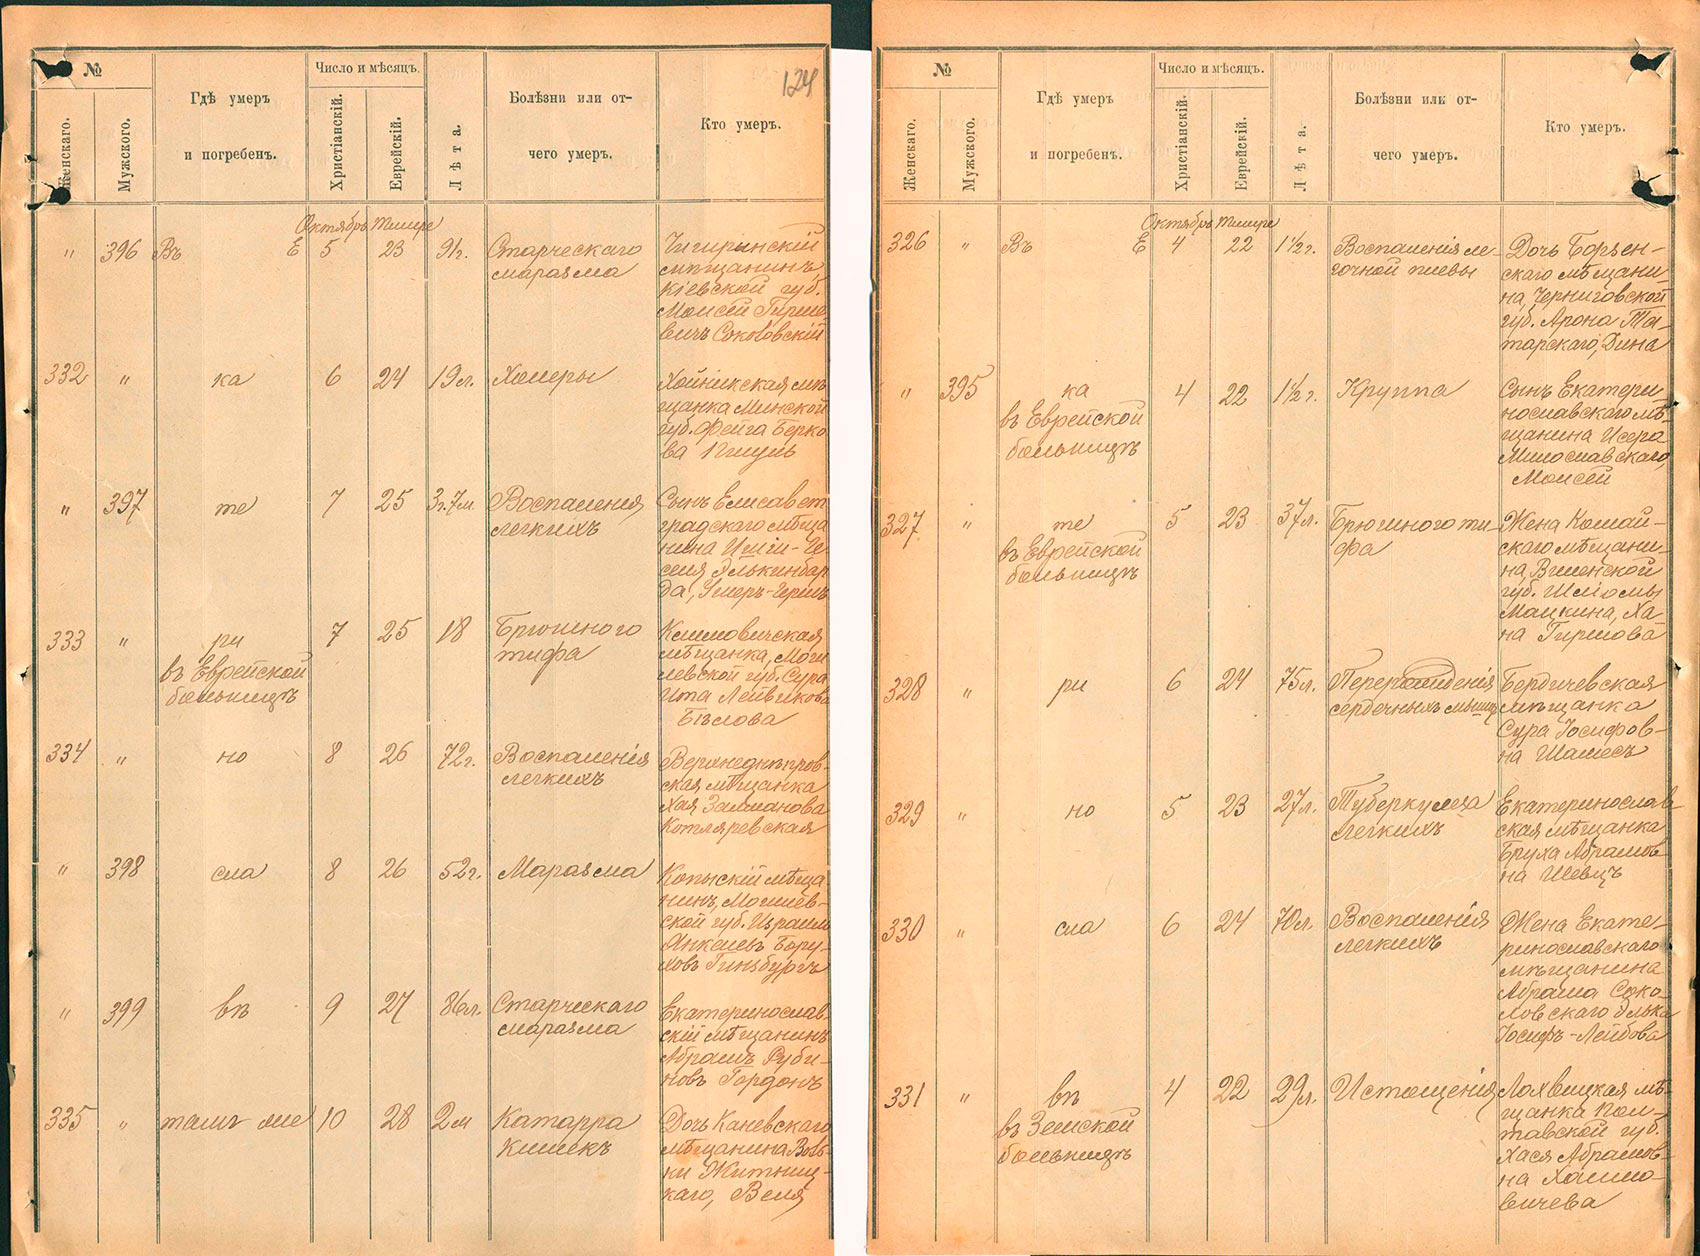 124
№
Женскаго.
Мужского.
Гдѣ умеръ
и погребенъ.
Число и мѣсяцъ.
Христіанскій.
Еврейскій.
Лѣта.
Болѣзни или от-
чего умеръ.
Кто умеръ.
Октябрь Тишре
" 396 Въ Е 5 23 91г. Старческаго
маразма
Чигиринскій
мѣщанинъ,
Кіевской губ.
Моисей Гирше-
вичъ Соколовскій
332 " ка 6 24 19л. Холеры
Хойникская мѣ-
щанка Минской
губ. Фейга Берко-
ва
" 397 те 7 25 3г.7м. Воспаленія
легкихъ
Сынъ Елисавет
градскаго мѣща
нина
да,
333 " ри 7 25 18 Брюшного
тифа
въ Еврейской
больницѣ
Климовичская
мѣщанка, Моги
левской губ. Сура
Ита Лейвикова
Бѣлова
334 " но 8 26 72г. Воспаленія
легкихъ
Верхнеднѣпров-
ская мѣщанка
Хая Залманова
Котляревская
" 398 сла 8 26 52г. Маразма
Копыскій мѣща-
нинъ, Могилев-
ской губ. Израиль
Янкелевъ Бору-
ховъ Гинзбургъ
" 399 вѣ 9 27 86л. Старческаго
маразма
Екатеринослав-
скій мѣщанинъ
Абрамъ Руби-
новъ Гордонъ
335 " тамъ же 10 28 2м Катарра
кишекъ
Дочь Каневскаго
мѣщанина Воль-
ки Житниц-
каго, Веля
№
Женскаго.
Мужского.
Гдѣ умеръ
и погребенъ.
Число и мѣсяцъ.
Христіанскій.
Еврейскій.
Лѣта.
Болѣзни или от-
чего умеръ.
Кто умеръ.
Октябрь Тишре
326 " Въ Е 4 22 1½г. Воспаленія ле-
гочной плевы
Дочь Борзен-
скаго мѣщани-
на, Черниговской
губ. Арона Та-
тарскаго, Дина
" 395 ка 4 22 1½г. Круппа
въ Еврейской
больницѣ
Сынъ Екатери-
нославскаго мѣ-
щанина Исера
Милославскаго,
Моисей
327 " те 5 23 37л. Брюшного ти-
фа
въ Еврейской
больницѣ
Жена
скаго мѣщани-
на, Виленской
губ. Шліомы
Малкина, Ха-
на Гиршова
328 " ри 6 24 75л. Перерожденія
сердечныхъ мышцъ
Бердичевская
мѣщанка
Сура Іосифов-
на Шамесъ
329 " но 5 23 27л. Туберкулеза
легкихъ
Екатеринослав
ская мѣщанка
Бруха Абрамов-
на Шевцъ
330 " сла 6 24 70л. Воспаленія
легкихъ
Жена Екате-
ринославскаго
мѣщанина
Абрама Соко-
ловскаго Элька
Іосифъ-Лейбова
331 " вѣ 4 22 29л. Истощенія
въ Земской
больницѣ
Лохвицкая мѣ-
щанка Пол-
тавской губ.
Хася Абрамов-
на Халимо-
вичева